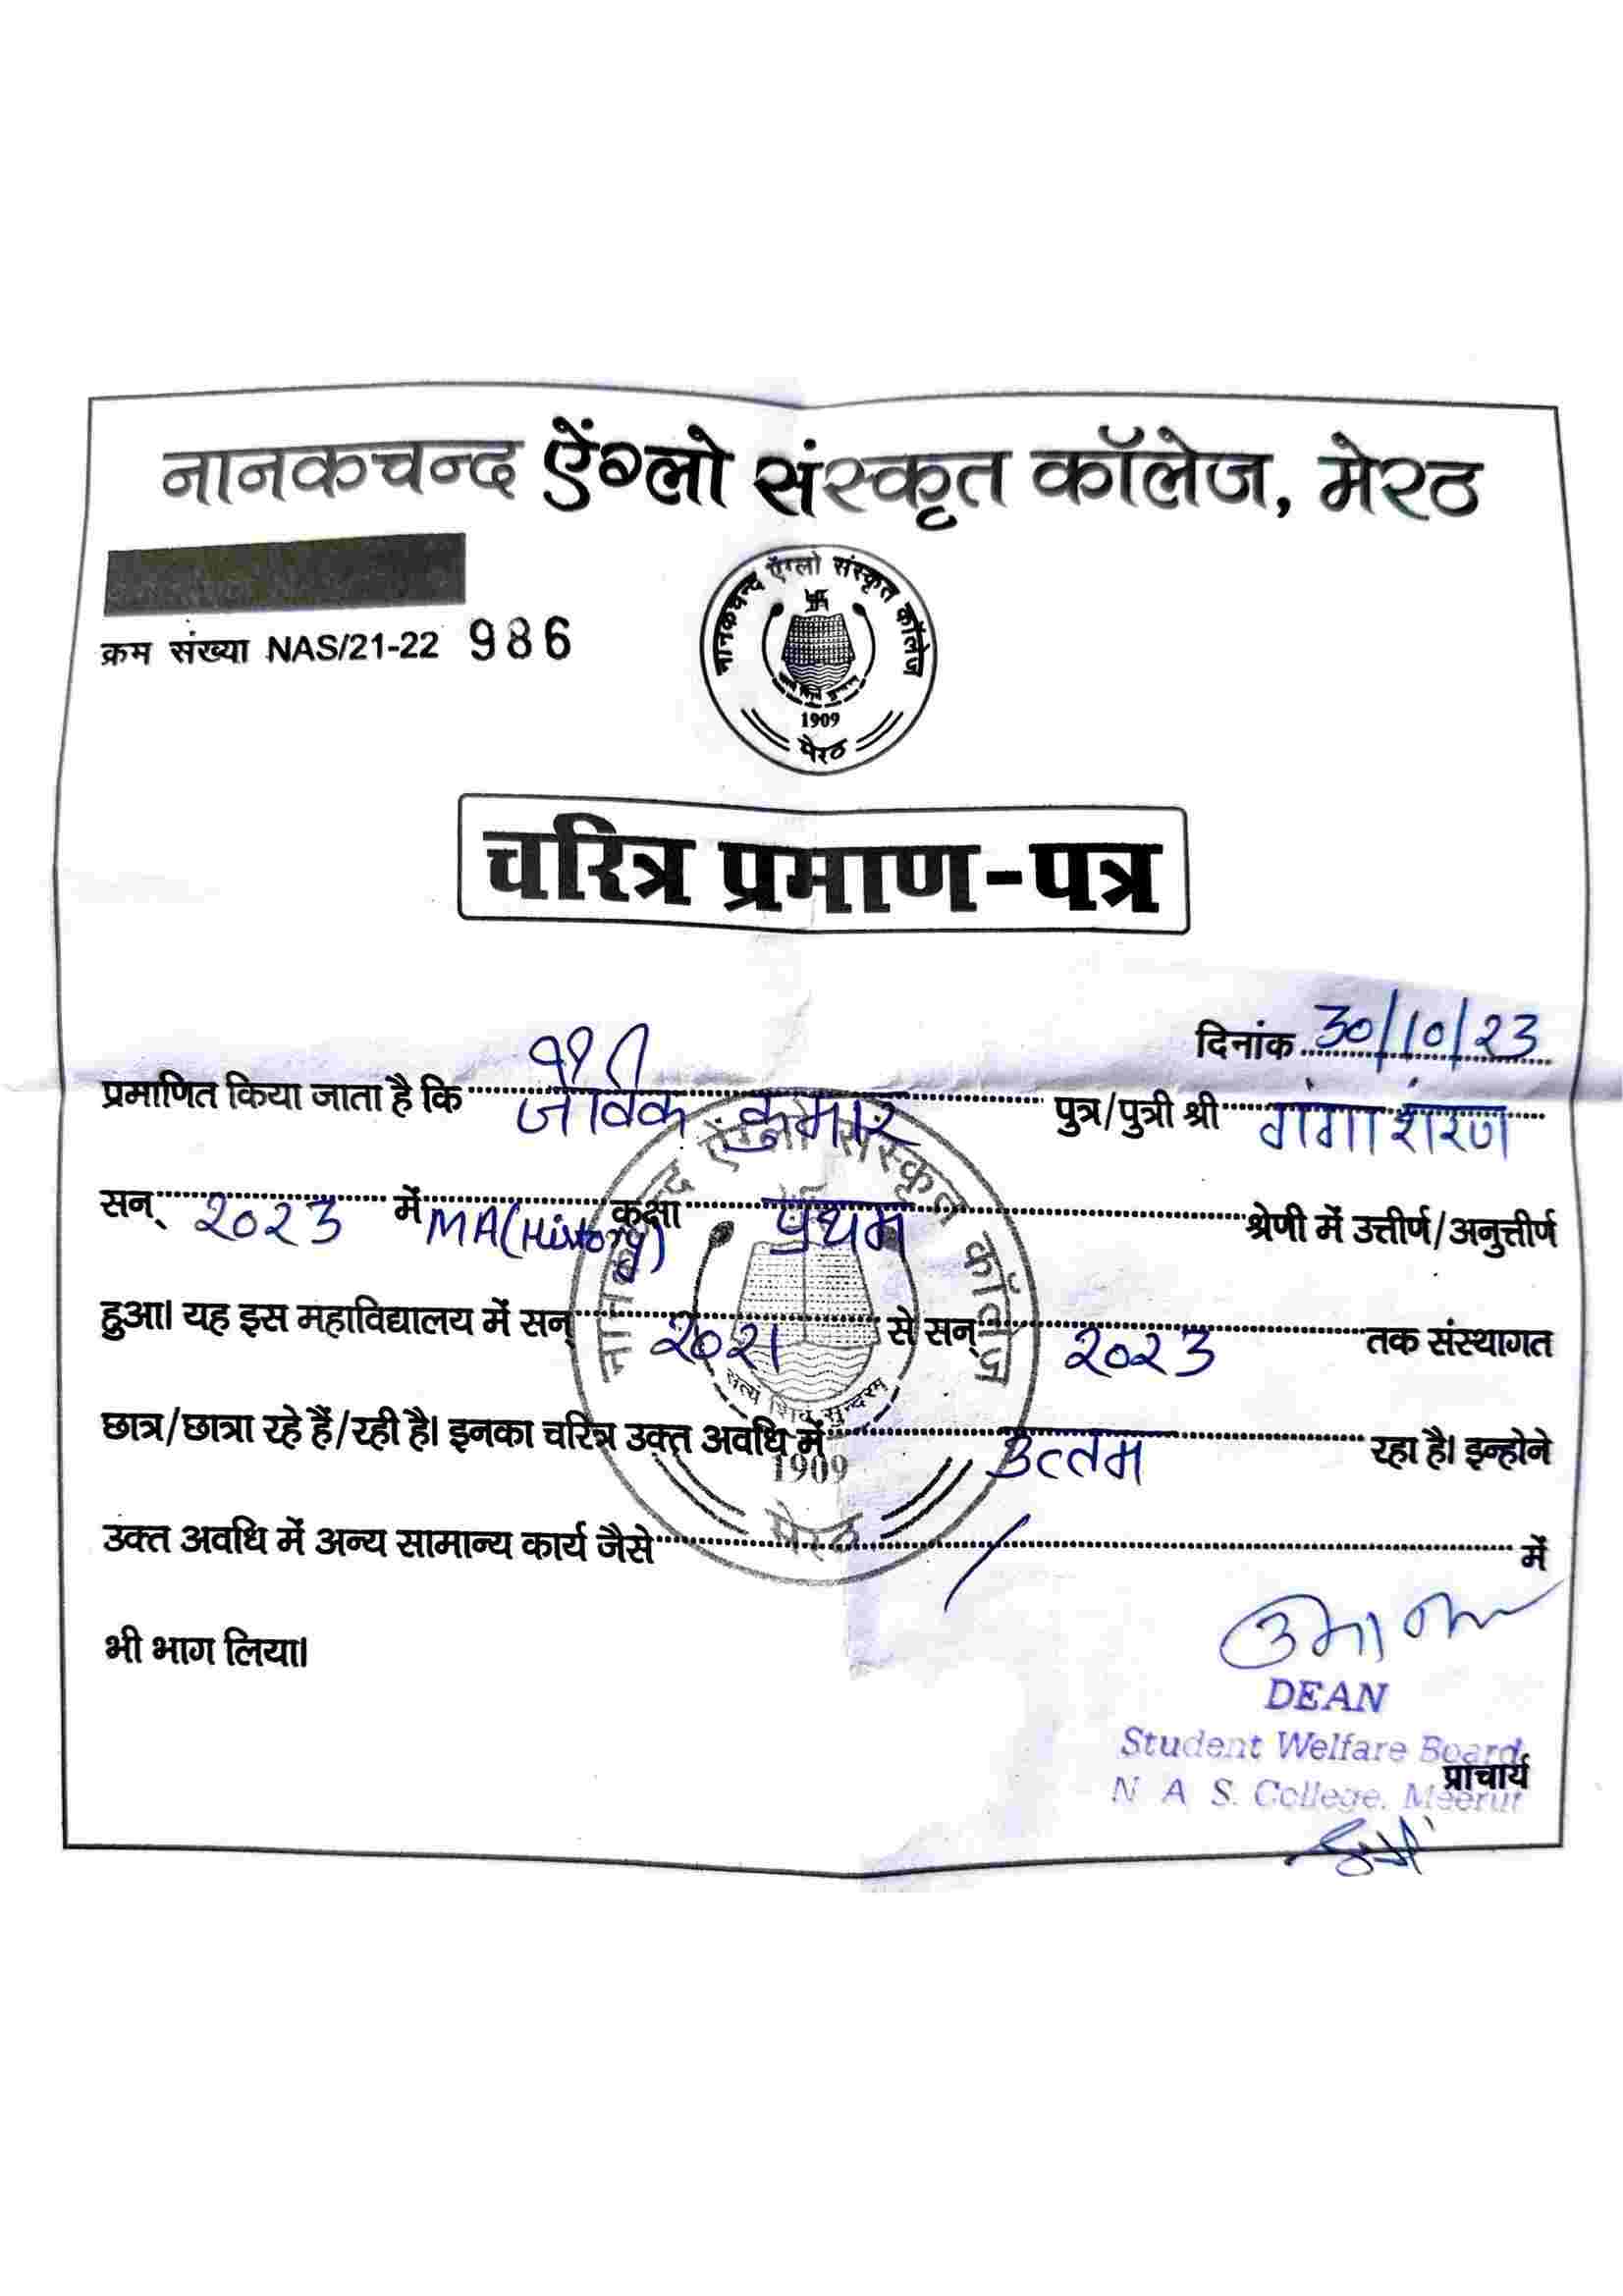 नानकचन्द ऐंग्लो संस्कृत कॉलेज, मेरठ
क्रम संख्या NAS/21-22 986
नानकचन्द ऐंग्लो संस्कृत कॉलेज
1909
मेरठ
चरित्र प्रमाण-पत्र
दिनांक 30/10/23
प्रमाणित किया जाता है कि कुमार पुत्र/पुत्री श्री गंगा शरण
सन् २०२३ में MA(History) कक्षा प्रथम श्रेणी में उत्तीर्ण/अनुत्तीर्ण
हुआ। यह इस महाविद्यालय में सन् २०२१ से सन् २०२३ तक संस्थागत
छात्र/छात्रा रहे हैं/रही है। इनका चरित्र उक्त अवधि में उत्तम रहा है। इन्होने
उक्त अवधि में अन्य सामान्य कार्य जैसे / में
भी भाग लिया।
नानकचन्द ऐंग्लो संस्कृत कॉलेज
सत्यं शिवं सुन्दरम्
1909
मेरठ
DEAN
Student Welfare Board
प्राचार्य
N A S. College. Meerut